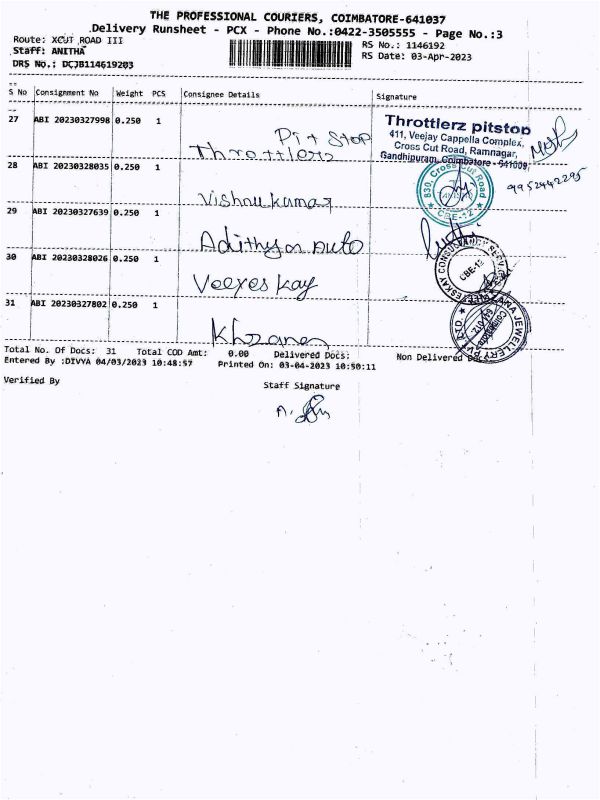 THE PROFESSIONAL COURIERS, COIMBATORE-641037
Delivery Runsheet - PCX - Phone No.:0422-3505555 - Page No.:3
Route: XCUT ROAD III
RS No.: 1146192
Staff: ANITHA
RS Date: 03-Apr-2023
DRS No.: DCJB114619203
S No Consignment No Weight PCS Consignee Details Signature
27 ABI 20230327998 0.250 1
Pit Stop
Throttlerz
Throttlerz pitstop
411, Veejay Cappella Complex,
Cross Cut Road, Ramnagar,
Gandhipuram, Coimbatore - 641009.
28 ABI 20230328035 0.250 1
Vishnukumar
830, Cross Cut Road
CBE-12
9952442295
29 ABI 20230327639 0.250 1
Adithyan Auto
30 ABI 20230328026 0.250 1
Veeyes Kay
CBE-12
31 ABI 20230327802 0.250 1
Khazana
JEWELLERY PVT LTD
Total No. Of Docs: 31 Total COD Amt: 0.00 Delivered Docs: Non Delivered Docs:
Entered By :DIVYA 04/03/2023 10:48:57 Printed On: 03-04-2023 10:50:11
Verified By Staff Signature